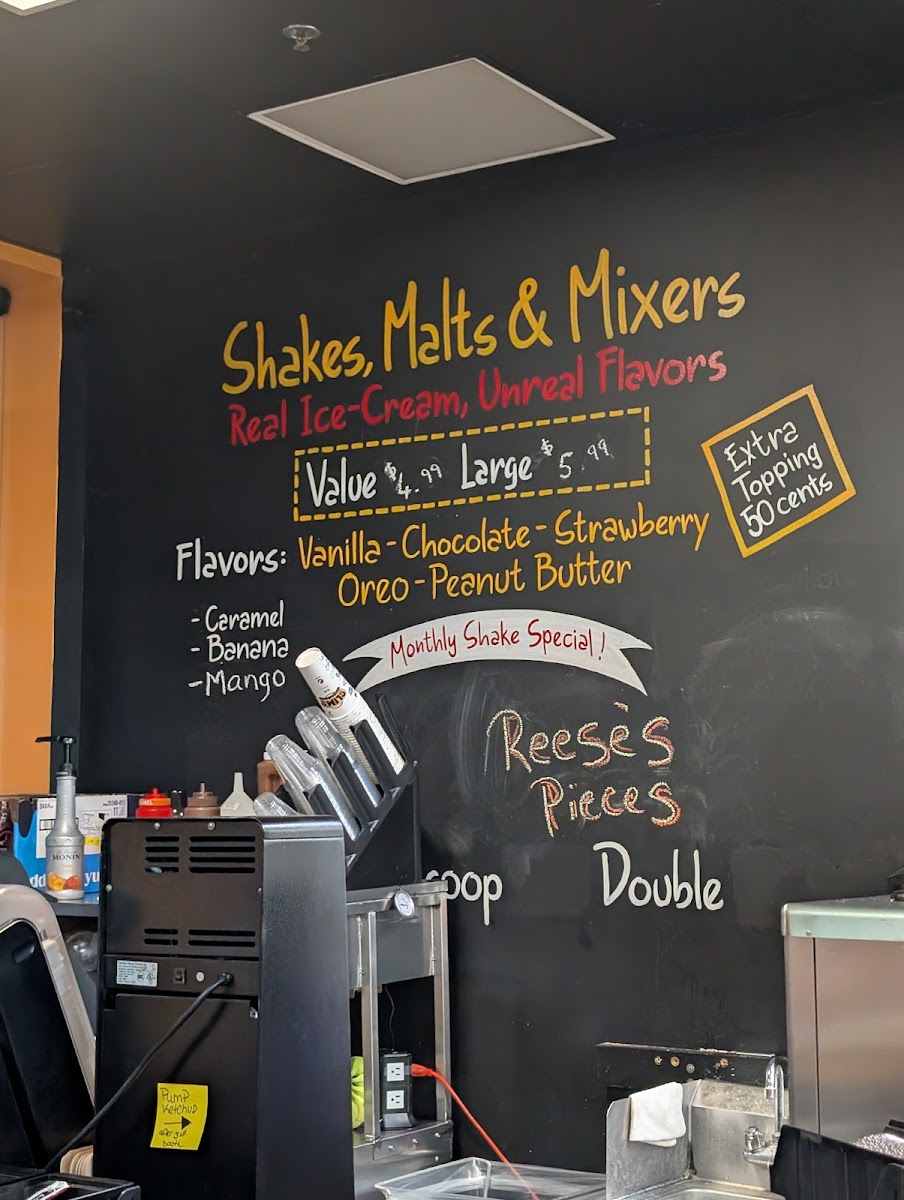 Shakes, Malts & Mixers
Real Ice-Cream, Unreal Flavors
Value $4.99 Large $5.99
Extra
Topping
50 cents
Flavors: Vanilla - Chocolate - Strawberry
Oreo - Peanut Butter
- Caramel
- Banana
- Mango
Monthly Shake Special!
Reese's
Pieces
coop Double
MONIN
PUMP
Ketchup